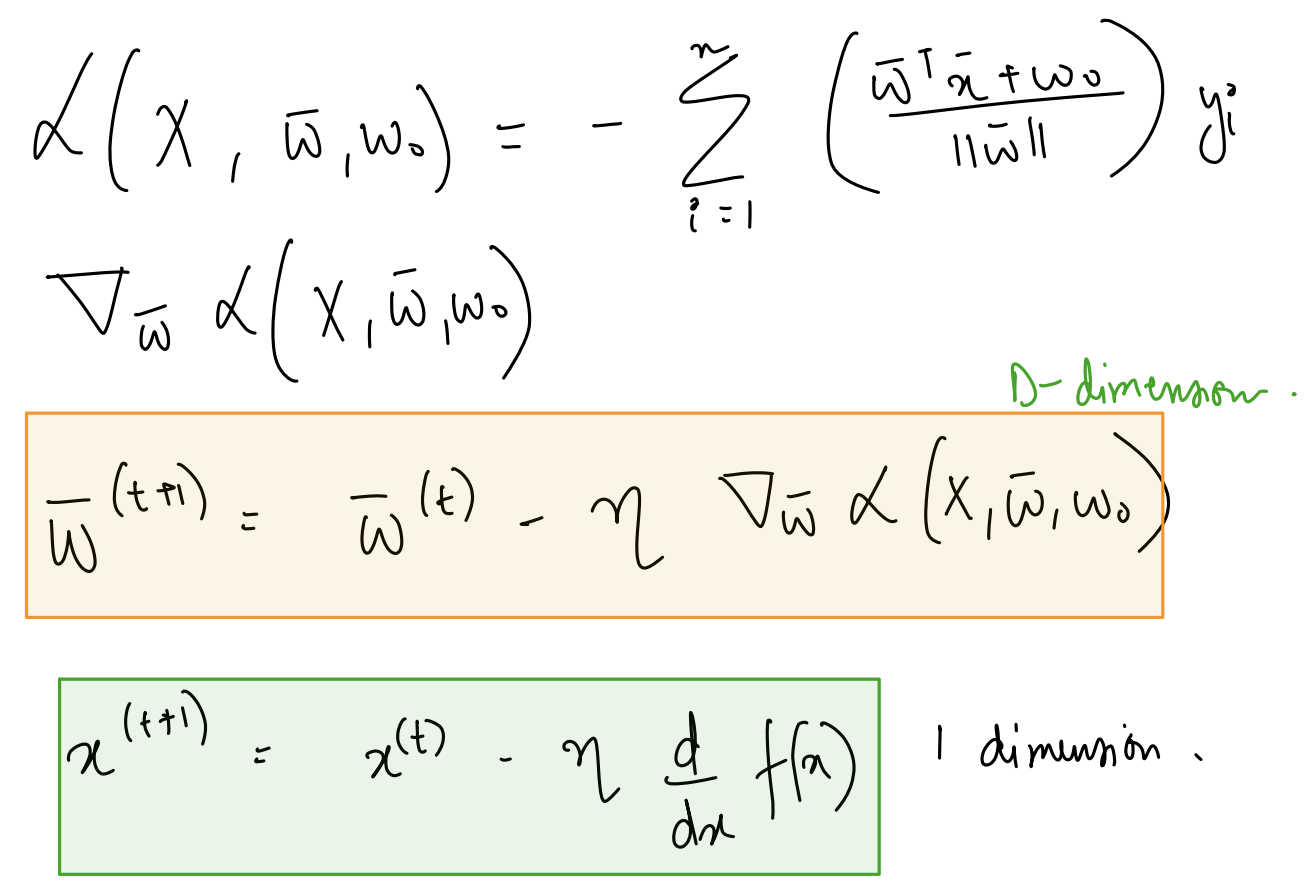 α(X, w̄, w₀) = - ∑ᵢ₌₁ⁿ ((w̄ᵀx̄ + w₀) / ||w̄||) yᵢ
∇_w̄ α(X, w̄, w₀)
D-dimension.
w̄⁽ᵗ⁺¹⁾ = w̄⁽ᵗ⁾ - η ∇_w̄ α(X, w̄, w₀)
x⁽ᵗ⁺¹⁾ = x⁽ᵗ⁾ - η d/dx f(x) 1 dimension.